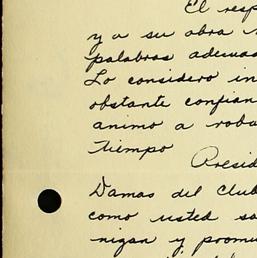 El resp
y a su obra
palabras adecua
Lo considero in
obstante confian
animo a roba
tiempo
Presid
Damas del Club
como usted sa
nigan y promu